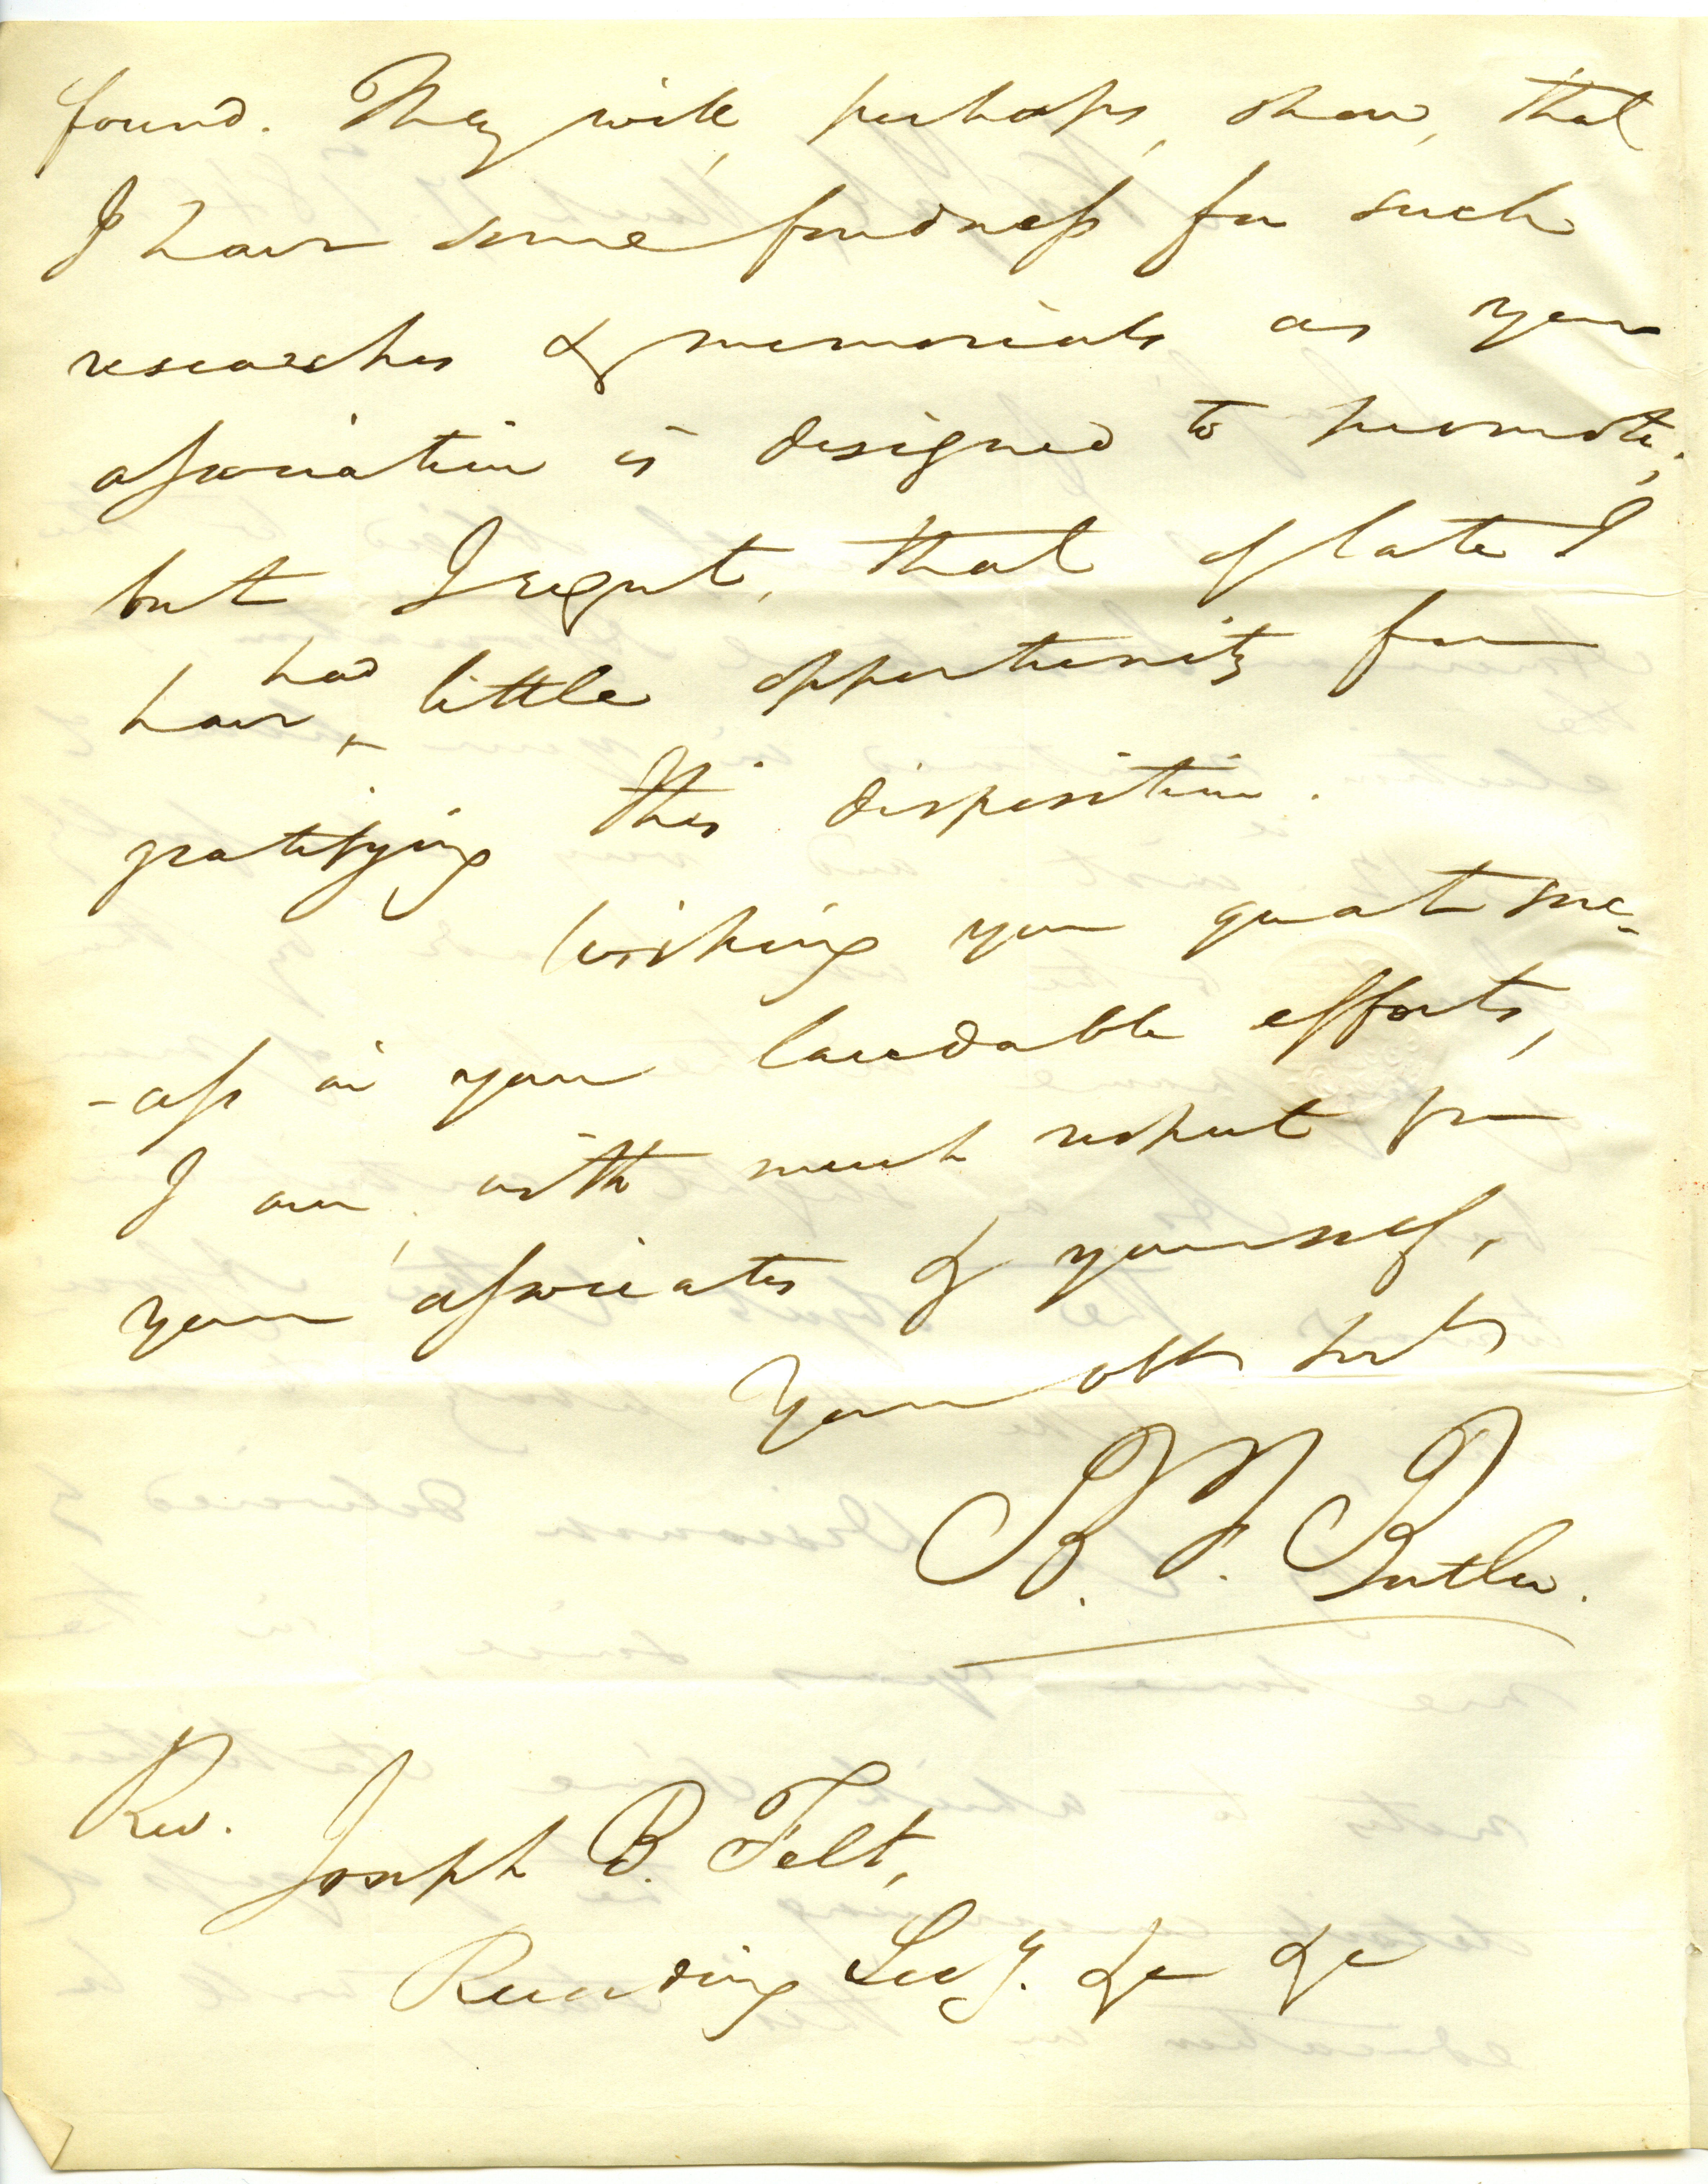 found. They will, perhaps, show, that
I have some fondness for such
researches & memorials as your
association is designed to promote;
but I regret, that of late I
have had little opportunity for
gratifying this disposition.
Wishing you great suc-
-cess in your laudable efforts,
I am, with much respect for
your associates & yourself,
Your obt Servt
B. F. Butler.
Rev.
Joseph B. Felt,
Recording Secy. &c &c